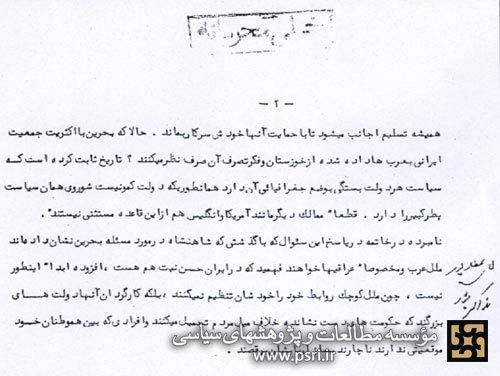 - ۲ -
همیشه تسلیم اجانب میشود تا با حمایت آنها خودش سرکار بماند . حالا که بحرین با اکثریت جمعیت
ایرانی بعرب ها داده شده از خوزستان و فکر تصرف آن صرف نظر میکنند ؟ تاریخ ثابت کرده است که
سیاست هر دولت بستگی بوضع جغرافیائی آن دارد همانطوریکه دولت کمونیست شوروی همان سیاست
پطر کبیر را دارد . قطعا" ممالک دیگر مانند آمریکا و انگلیس هم از این قاعده مستثنی نیستند".
نامبرده در خاتمه در پاسخ این سئوال که با گذشتی که شاهنشاه در مورد مسئله بحرین نشان داده اند
ملل عرب و مخصوصا" عراقیها خواهند فهمید که در ایران حسن نیت هم هست ، افزوده ابدا" اینطور
نیست ، چون ملل کوچک روابط خود را خودشان تنظیم نمیکنند ، بلکه کارگردان آنها دولت های
بزرگند که حکومت های دست نشانده بر خلاف میل مردم تحمیل میکنند و افرادی که بین هموطنان خود
موقعیتی ندارند ناچارند
مؤسسه مطالعات و پژوهشهای سیاسی
www.psri.ir